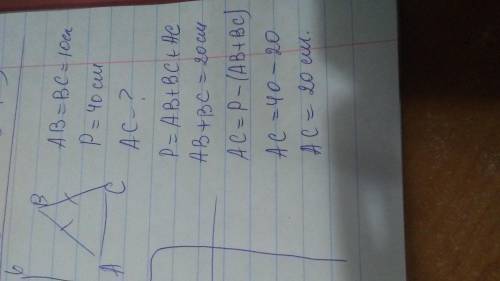 6
B
A
C
AB=BC=10см
P=40см
AC=?
P=AB+BC+AC
AB+BC=20см
AC=P-(AB+BC)
AC=40-20
AC=20см.